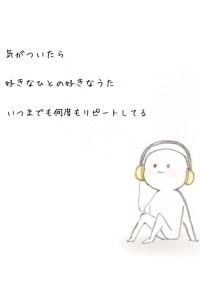 気がついたら
好きなひとの好きなうた
いつまでも何度もリピートしてる